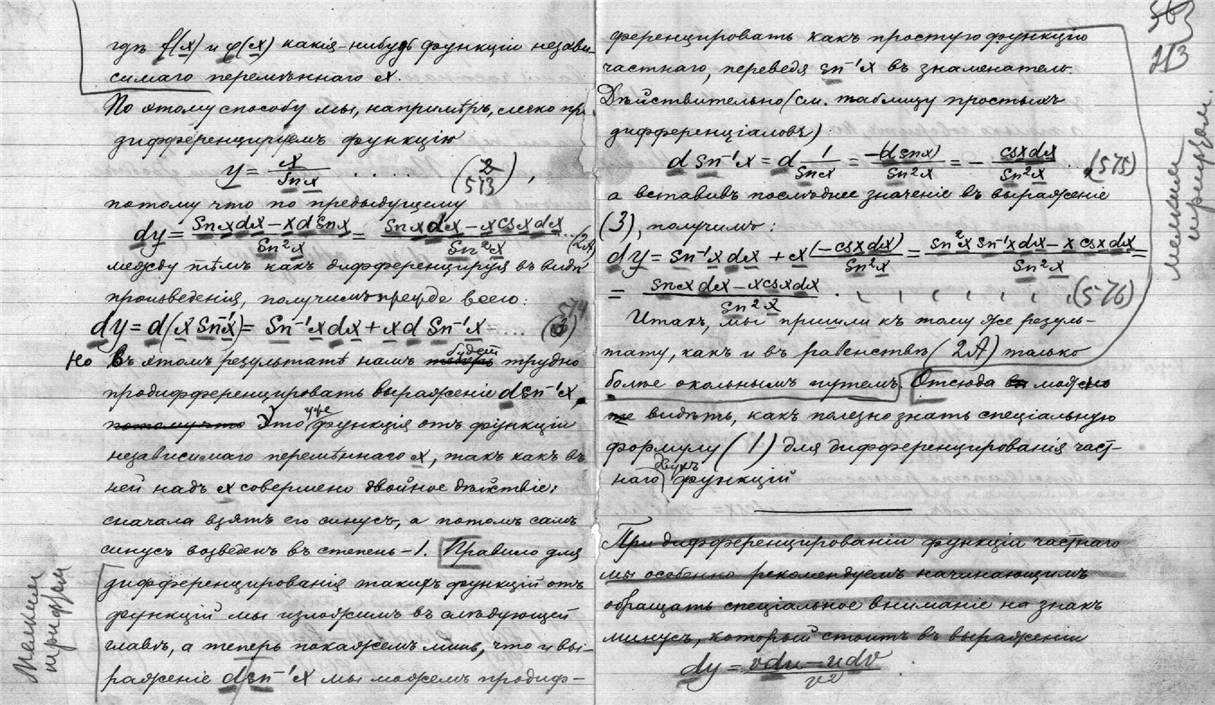 гдѣ f(x) и φ(x) какія-нибудь функціи незави-
симаго перемѣннаго x.
По этому способу мы, напримѣръ, легко про-
дифференцируемъ функцію
y = x/Sn x . . . . . (2 573),
потому что по предыдущему
dy = (Sn x dx – x d Sn x)/Sn²x = (Sn x dx – x cs x dx)/Sn²x . . (2A)
между тѣмъ какъ дифференцируя въ видѣ
произведенія, получимъ прежде всего:
dy = d(x Sn⁻¹x) = Sn⁻¹x dx + x d Sn⁻¹x = .... (3) 574
Но въ этомъ результатѣ намъ будетъ трудно
продифференцировать выраженіе d sn⁻¹x,
потому что Это уже функція отъ функціи
независимаго перемѣннаго x, такъ какъ въ
ней надъ x совершено двойное дѣйствіе:
сначала взятъ его синусъ, а потомъ самъ
синусъ возведенъ въ степень –1. Правило для
дифференцированія такихъ функцій отъ
функцій мы изложимъ въ слѣдующей
главѣ, а теперь покажемъ лишь, что и вы-
раженіе d sn⁻¹x мы можемъ продиф-
Мелкимъ
шрифтом
563
113
ференцировать какъ простую функцію
частнаго, переведя sn⁻¹x въ знаменатель.
Дѣйствительно (см. таблицу простыхъ
дифференціаловъ)
d Sn⁻¹x = d 1/Sn x = –(d sn x)/Sn²x = – cs x dx/Sn²x . . . (575)
а вставивъ послѣднее значеніе въ выраженіе
(3), получимъ:
dy = Sn⁻¹x dx + x (–cs x dx)/Sn²x = (Sn²x Sn⁻¹x dx – x cs x dx)/Sn²x =
= (sn x dx – x cs x dx)/Sn²x . . . . . . . . (576)
Итакъ, мы пришли къ тому же резуль-
тату, какъ и въ равенствѣ (2A) только
болѣе окольнымъ путемъ. Отсюда можно
видѣть, какъ полезно знать спеціальную
формулу (1) для дифференцированія част-
наго двухъ функцій
При дифференцированіи функціи частнаго
мы особенно рекомендуемъ начинающимъ
обращать спеціальное вниманіе на знакъ
минусъ, который стоитъ въ выраженіи
dy = (v du – u dv)/v²
мелкимъ
шрифтом.